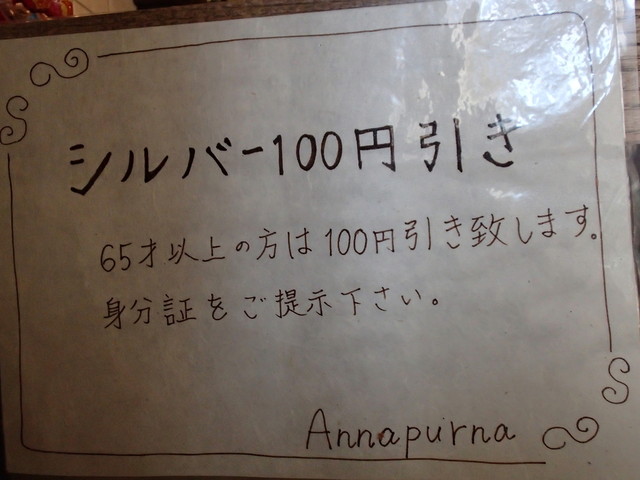 シルバー100円引き
65才以上の方は100円引き致します。
身分証をご提示下さい。
Annapurna